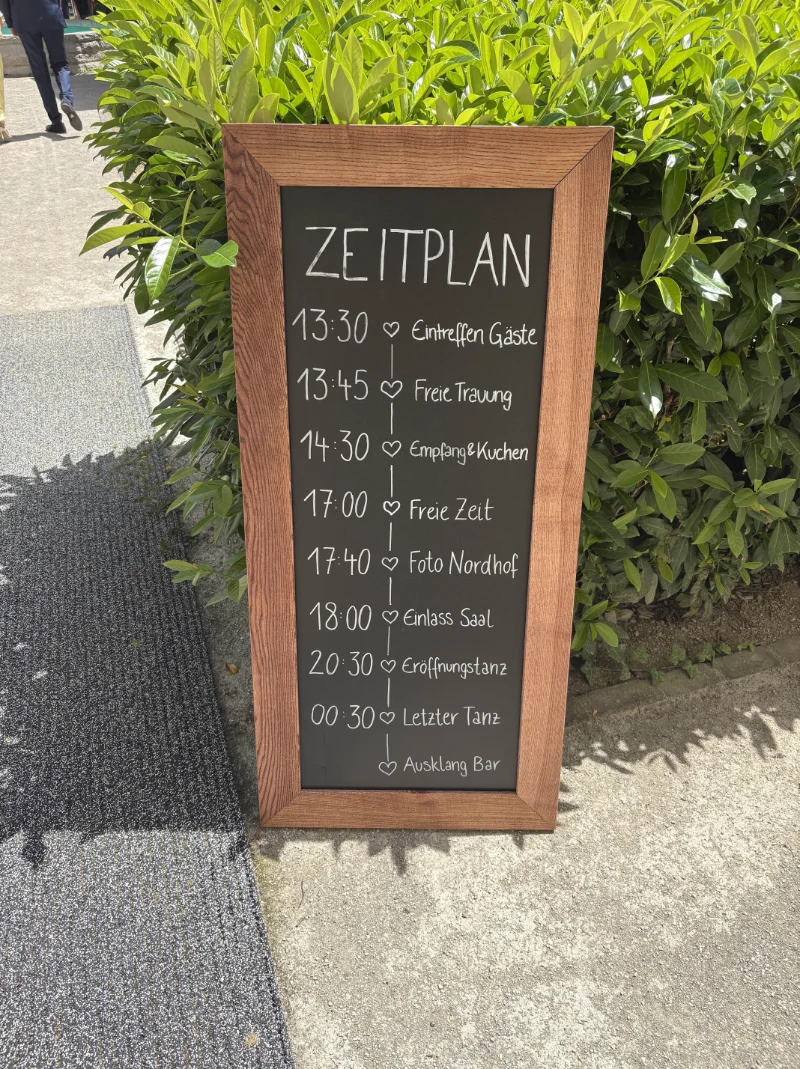 ZEITPLAN
13:30 ♡ Eintreffen Gäste
13:45 ♡ Freie Trauung
14:30 ♡ Empfang & Kuchen
17:00 ♡ Freie Zeit
17:40 ♡ Foto Nordhof
18:00 ♡ Einlass Saal
20:30 ♡ Eröffnungstanz
00:30 ♡ Letzter Tanz
♡ Ausklang Bar